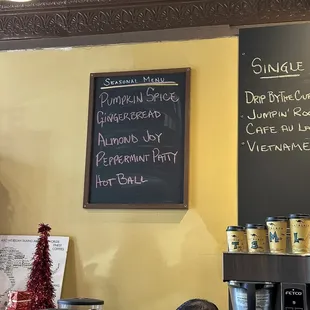 Seasonal Menu
Pumpkin Spice
Gingerbread
Almond Joy
Peppermint Patty
Hot Ball
Single
Drip By The Cup
- Jumpin'
Cafe Au
Vietname
FETCO